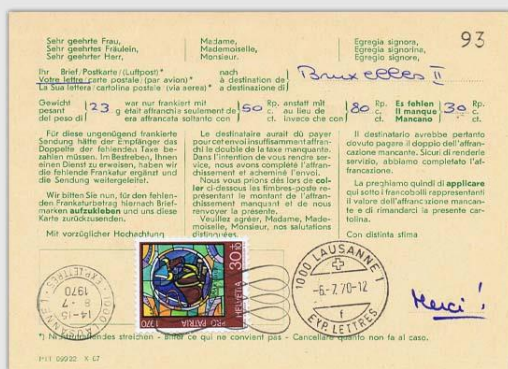 Sehr geehrte Frau, Madame, Egregia signora,
Sehr geehrtes Fräulein, Mademoiselle, Egregia signorina,
Sehr geehrter Herr, Monsieur. Egregio signore,
93
Ihr Brief/Postkarte (Luftpost)* nach
Votre lettre/carte postale (par avion)* à destination de Bruxelles II
La Sua lettera/cartolina postale (via aerea)* a destinazione di
Gewicht war nur frankiert mit Rp. anstatt mit Rp. Es fehlen Rp.
pesant 23 g était affranchie seulement de 50 ct. au lieu de 80 ct. Il manque 30 ct.
del peso di era affrancata soltanto con ct. invece che con ct. Mancano ct.
Für diese ungenügend frankierte
Sendung hätte der Empfänger das
Doppelte der fehlenden Taxe be-
zahlen müssen. Im Bestreben, Ihnen
einen Dienst zu erweisen, haben wir
die fehlende Frankatur ergänzt und
die Sendung weitergeleitet.
Wir bitten Sie nun, für den fehlen-
den Frankaturbetrag hienach Brief-
marken aufzukleben und uns diese
Karte zurückzusenden.
Mit vorzüglicher Hochachtung
Le destinataire aurait dû payer
pour cet envoi insuffisamment affran-
chi le double de la taxe manquante.
Dans l'intention de vous rendre ser-
vice, nous avons complété l'affran-
chissement et acheminé l'envoi.
Nous vous prions dès lors de col-
ler ci-dessous les timbres-poste re-
présentant le montant de l'affran-
chissement manquant et de nous
renvoyer la présente.
Veuillez agréer, Madame, Made-
moiselle, Monsieur, nos salutations
distinguées.
Il destinatario avrebbe pertanto
dovuto pagare il doppio dell'affran-
cazione mancante. Sicuri di renderle
servizio, abbiamo completato l'af-
francazione.
La preghiamo quindi di applicare
qui sotto i francobolli rappresentanti
il valore dell'affrancazione mancan-
te e di rimandarci la presente car-
tolina.
Con distinta stima
1000 LAUSANNE 1
14-15
8.-7.
1970
EXP. LETTRES
30+10
HELVETIA
PRO PATRIA
1970
1000 LAUSANNE 1
-6.-7.70-12
f
EXP. LETTRES
Merci !
*) Nichtzutreffendes streichen - Biffer ce qui ne convient pas - Cancellare quanto non fa al caso.